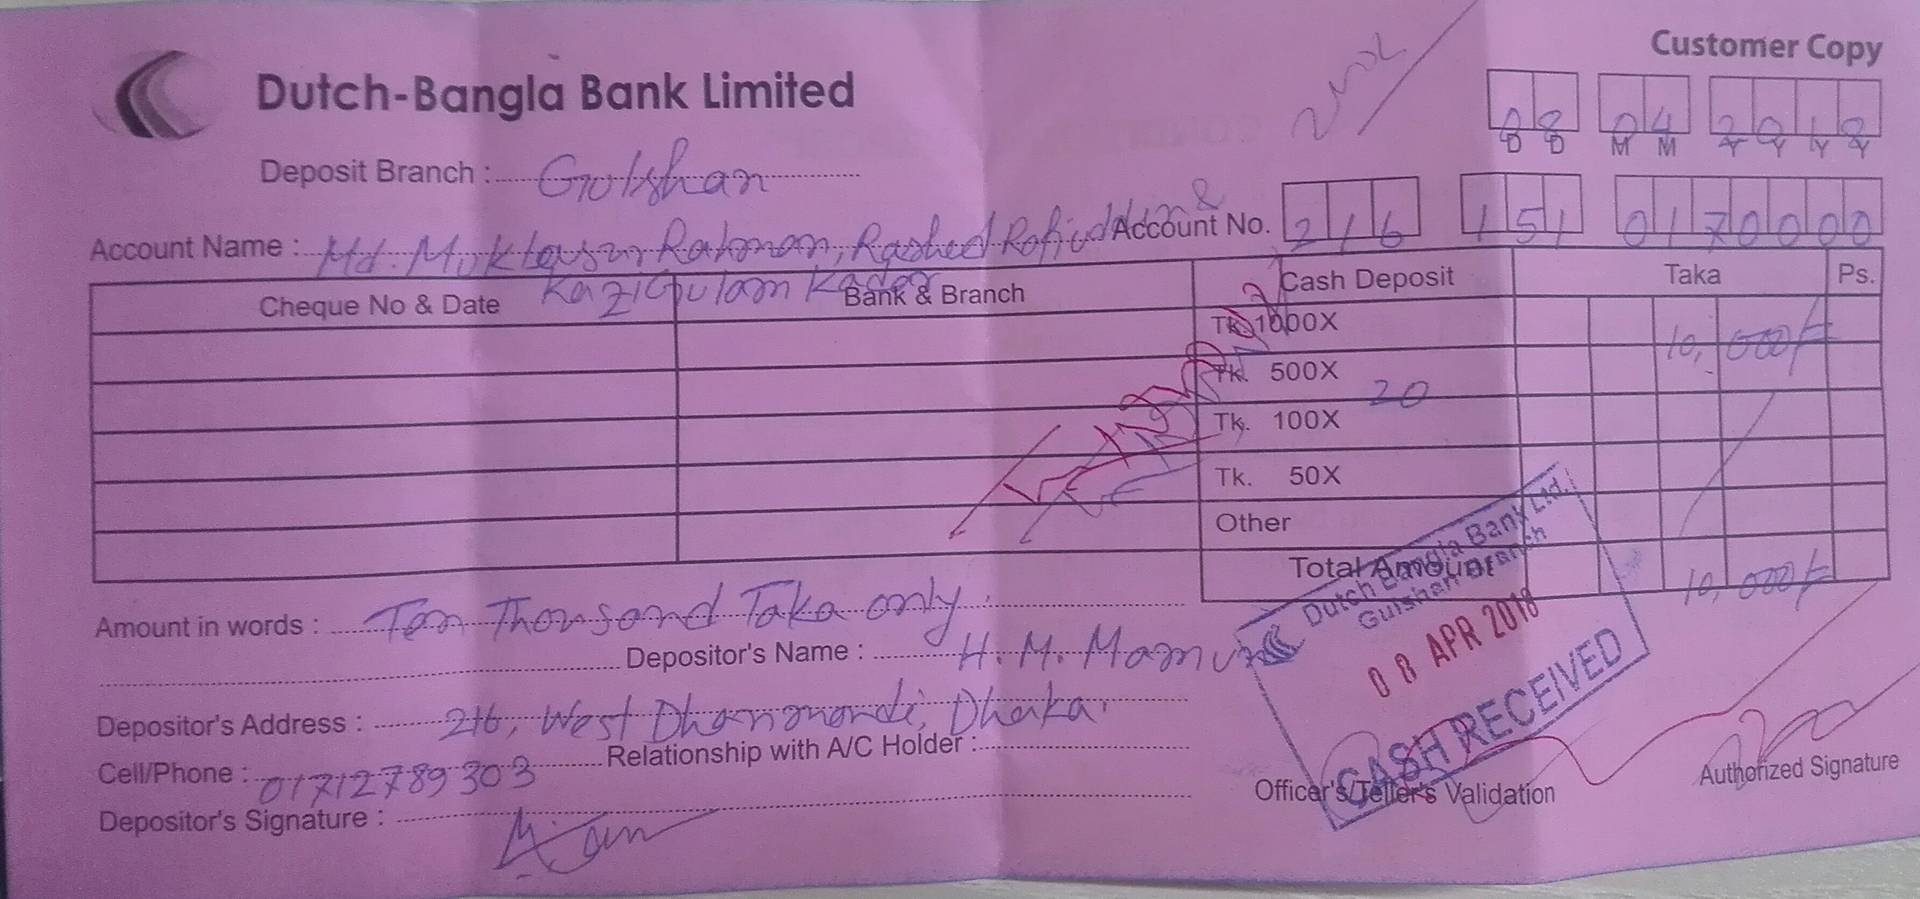 Customer Copy
Dutch-Bangla Bank Limited
08 04 2018
D D M M Y Y Y Y
Deposit Branch : Gulshan
Account Name : Md. Muktausur Rahman, Rashed Rafiuddin & Account No. 216 151 0170000
Kazi Gulam Kader
Cheque No & Date Bank & Branch Cash Deposit Taka Ps.
Tk. 1000X 10,000/-
Tk. 500X 20
Tk. 100X
Tk. 50X
Other
Total Amount 10,000/-
Amount in words : Ten Thousand Taka only.
Depositor's Name : H. M. Mamun
Depositor's Address : 216, West Dhanmondi, Dhaka.
Cell/Phone : 01712789303 Relationship with A/C Holder :
Depositor's Signature :
Dutch Bangla Bank Ltd.
Gulshan Branch
08 APR 2018
CASH RECEIVED
Officer's/Teller's Validation
Authorized Signature